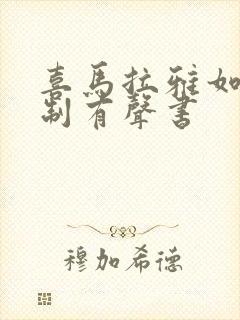 喜馬拉雅如
制有聲書
穆加希德